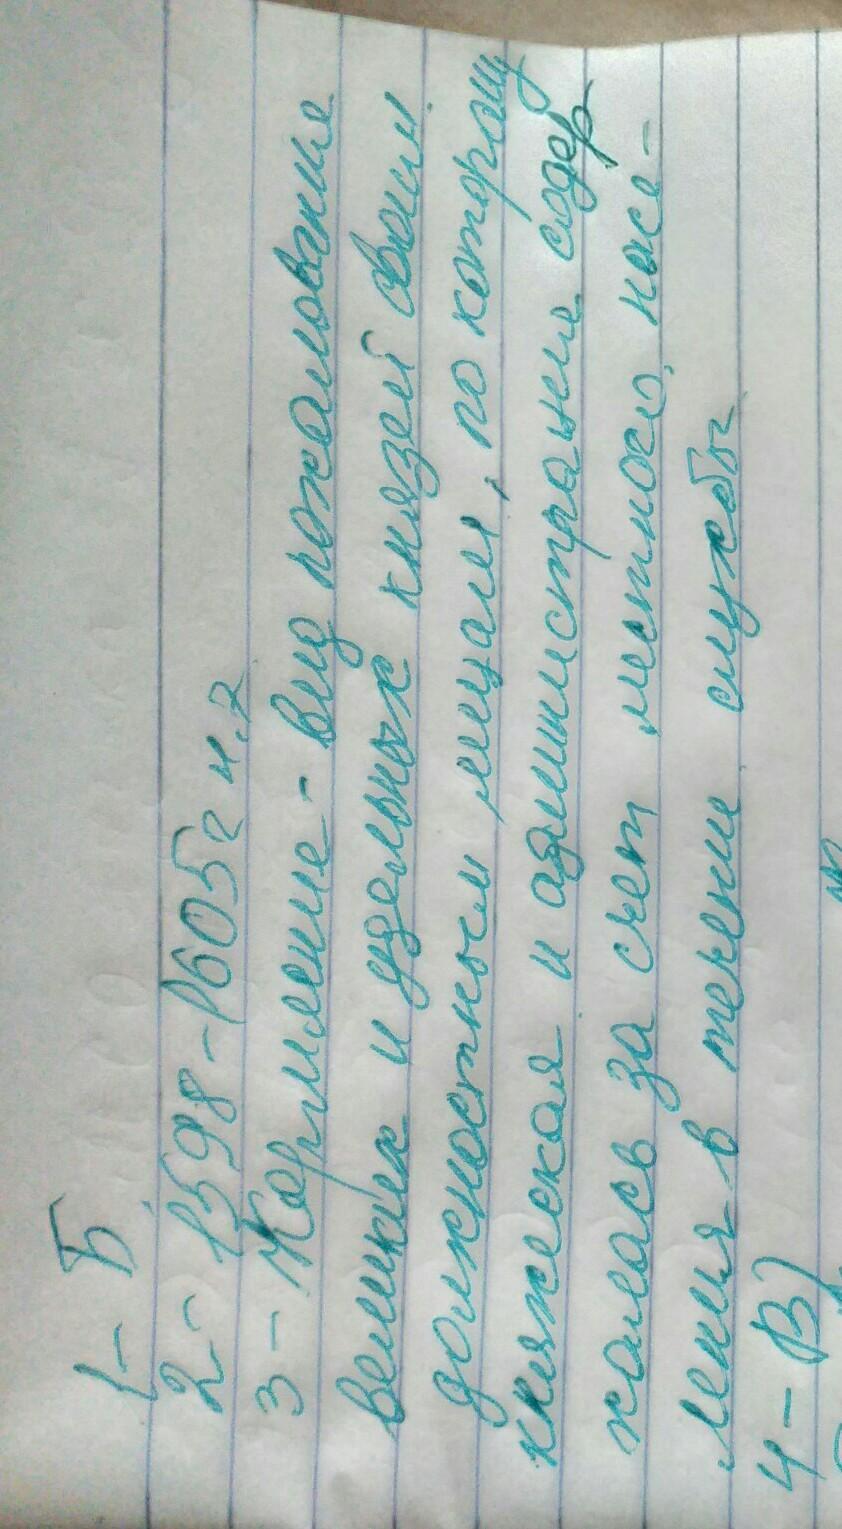 1- Б
2- 1598-1605г н.э
3 - Кормление - вид пожалование
великих и удельных князей своим
должностным лицам, по которому
княжеская и администрание содер
жалась за счет местного насе-
ления в течении службы
4- В)